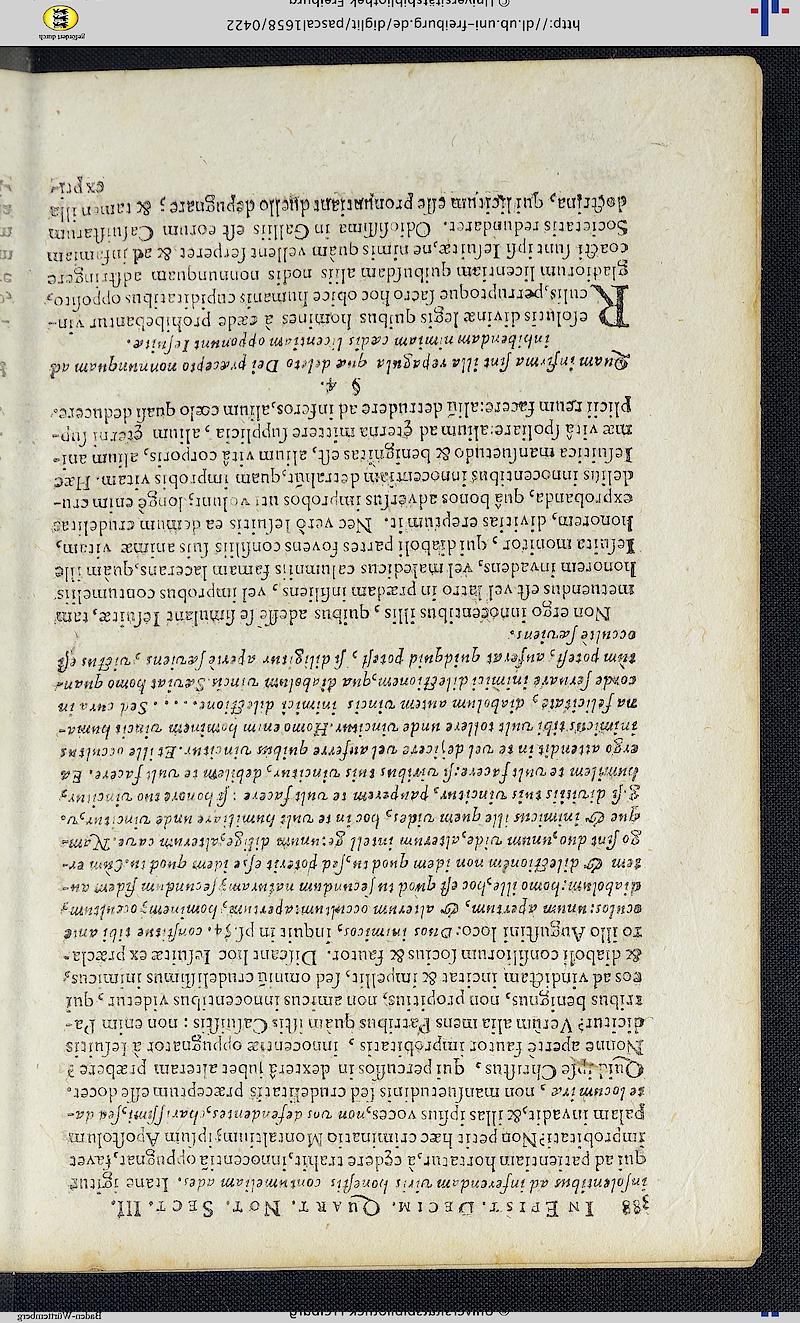 388 IN EPIST. DECIM. QUART. NOT. SECT. III.
inſolentibus ad inferendam viris honeſtis contumeliam ades. Itane igitur
qui ad patientiam hortatur, à cędere trahit, innocentiā oppugnat, favet
improbitati? Non petit hæc criminatio Montaltium; ipſum Apoſtolum
palam invadit, & illas ipſius voces, non vos defendentes, chariſſimi, ſed da-
te locum iræ, non manſuetudinis ſed crudelitatis præceptum eſſe docet.
Quid ipſe Chriſtus, qui percuſſos in dexterâ jubet alteram præbere?
Nonne apertè fautor improbitatis, innocentiæ oppugnator à Ieſuitis
dicitur? Verùm alia mens Patribus quàm iſtis Caſuiſtis: non enim Pa-
tribus benignus, non propitius, non amicus innocentibus videtur, qui
eos ad vindictam incitat & impellit, ſed omniū crudeliſſimus inimicus,
& diaboli conſiliorum ſocius & fautor. Diſcant hoc Ieſuitæ ex præcla-
ro illo Auguſtini loco: Duos inimicos, inquit in pſ. 34. conſtitue tibi ante
oculos: unum apertum, & alterum occultum: apertum, hominem; occultum,
diabolum: homo ille, hoc eſt quod tu ſecundum naturam; ſecundum fidem au-
tem & dilectionem non idem quod tu, ſed poterit eſſe idem quod tu. Cùm er-
go ſint duo, unum vide, alterum intellige: unum dilige, alterum cave. Nam-
que & inimicus ille quem vides, hoc in te vult humiliare unde vincitur, v.
g. ſi divitiis tuis vincitur, pauperem te vult facere: ſi honore tuo vincitur,
humilem te vult facere: ſi viribus tuis vincitur, debilem te vult facere. Ea
ergo attendit in te vel dejicere vel auferre quibus vincitur. Et ille occultus
inimicus tibi vult tollere unde vincitur. Homo enim hominem vincit huma-
na felicitate, diabolum autem vincit inimici dilectione. . . . . Sed cura in
corde ſervare inimici dilectionem, qua diabolum vincis. Sæviat homo quan-
tum poteſt, auferat quidquid poteſt, ſi diligitur apertè ſæviens, victus eſt
occultè ſæviens.
Non ergo innocentibus illis, quibus adeſſe ſe ſimulant Ieſuitæ, tam
metuendus eſt vel latro in prædam inſiliens, vel improbus contumeliis
honorem invadens, vel maledicus calumniis famam lacerans, quàm ille
Ieſuita monitor, qui diaboli partes fovens conſiliis ſuis animæ vitam,
honorem, divitias ereptum it. Nec verò Ieſuitis ea demum crudelitas
exprobanda, quâ bonos adverſus improbos uti volunt; longè enim cru-
deliùs innocentibus innocentiam detrahūt, quam improbis vitam. Hæc
Ieſuitica manſuetudo & benignitas eſt, alium vitâ corporis, alium ani-
mæ vitâ ſpoliare: alium ad ęterna mittere ſupplicia, alium ęterni ſup-
plicii reum facere: aliū detrudere ad inferos, alium cœlo quaſi deducere.
§ 4.
Quam infirma ſint illa repagula quæ deleto Dei præcepto nonnunquam ad
inhibendam nimiam cædis licentiam opponunt Ieſuitæ.
Reſolutis divinæ legis quibus homines à cæde prohibebantur vin-
culis, perruptoque ſacro hoc obice humanis cupiditatibus oppoſito,
gladiorum licentiam quibuſdam aliis nodis nonnunquam adſtringere
coacti ſunt ipſi Ieſuitæ, ne nimis quàm vellent ſerperet & ad infamiam
Societatis redundaret. Odioſiſſima in Galliis eſt eorum Caſuiſtarum
doctrina, qui licitum eſſe pronuntiant duello depugnare; & tamen illa
expri-
http://dl.ub.uni-freiburg.de/diglit/pascal1658/0422
© Universitätsbibliothek Freiburg
gefördert durch
Baden-Württemberg